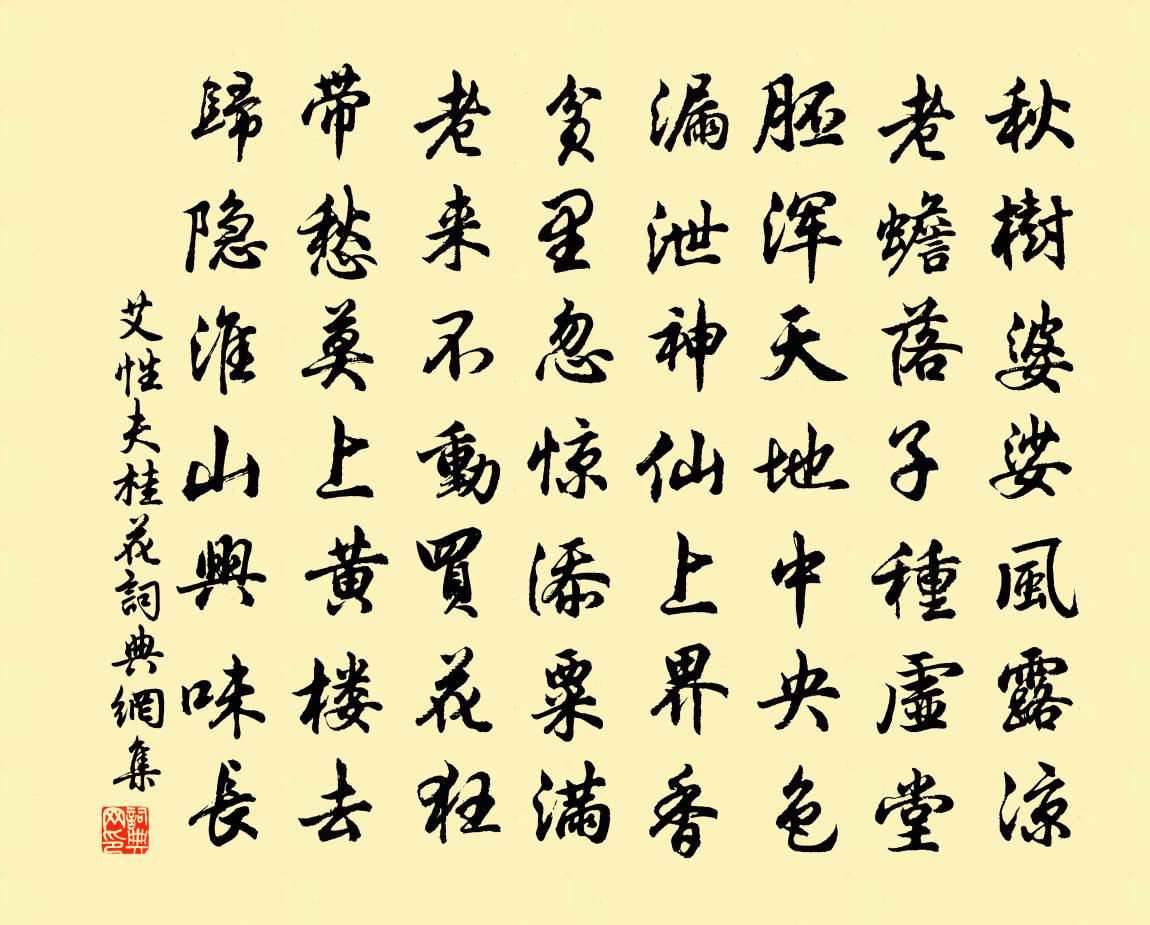 秋樹婆娑風露涼
老蟾落子種虛堂
胚浑天地中央色
漏泄神仙上界香
贫里忽惊添粟满
老来不動買花狂
带愁莫上黄楼去
歸隐淮山興味長
艾性夫桂花詞典網集
詞典网印